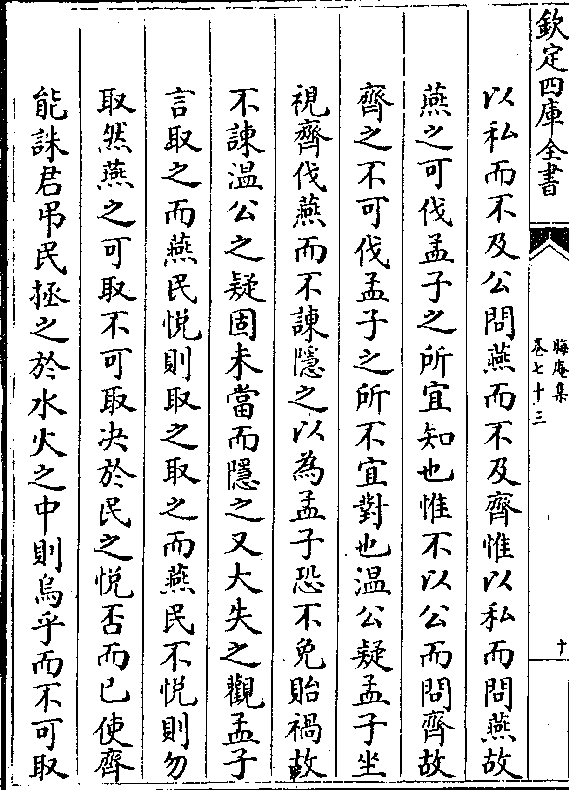 欽定四庫全書
晦庵集
卷七十三
十
以私而不及公問燕而不及齊惟以私而問燕故
燕之可伐孟子之所宜知也惟不以公而問齊故
齊之不可伐孟子之所不宜對也温公疑孟子坐
視齊伐燕而不諫隱之以為孟子恐不免貽禍故
不諫温公之疑固未當而隱之又大失之觀孟子
言取之而燕民悦則取之取之而燕民不悦則勿
取然燕之可取不可取决於民之悦否而已使齊
能誅君弔民拯之於水火之中則烏乎而不可取